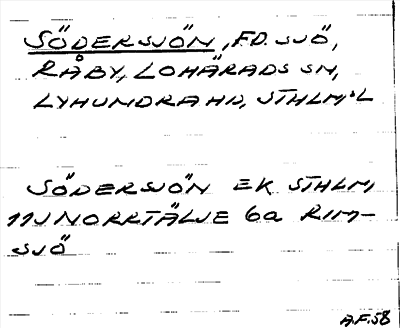 SÖDERSJÖN, F.D. SJÖ,
RÅBY, LOHÄRADS SN,
LYHUNDRA HD, STHLM:S L
SÖDERSJÖN EK STHLM,
11J NORRTÄLJE 6a RIM-
SJÖ
A.F.58